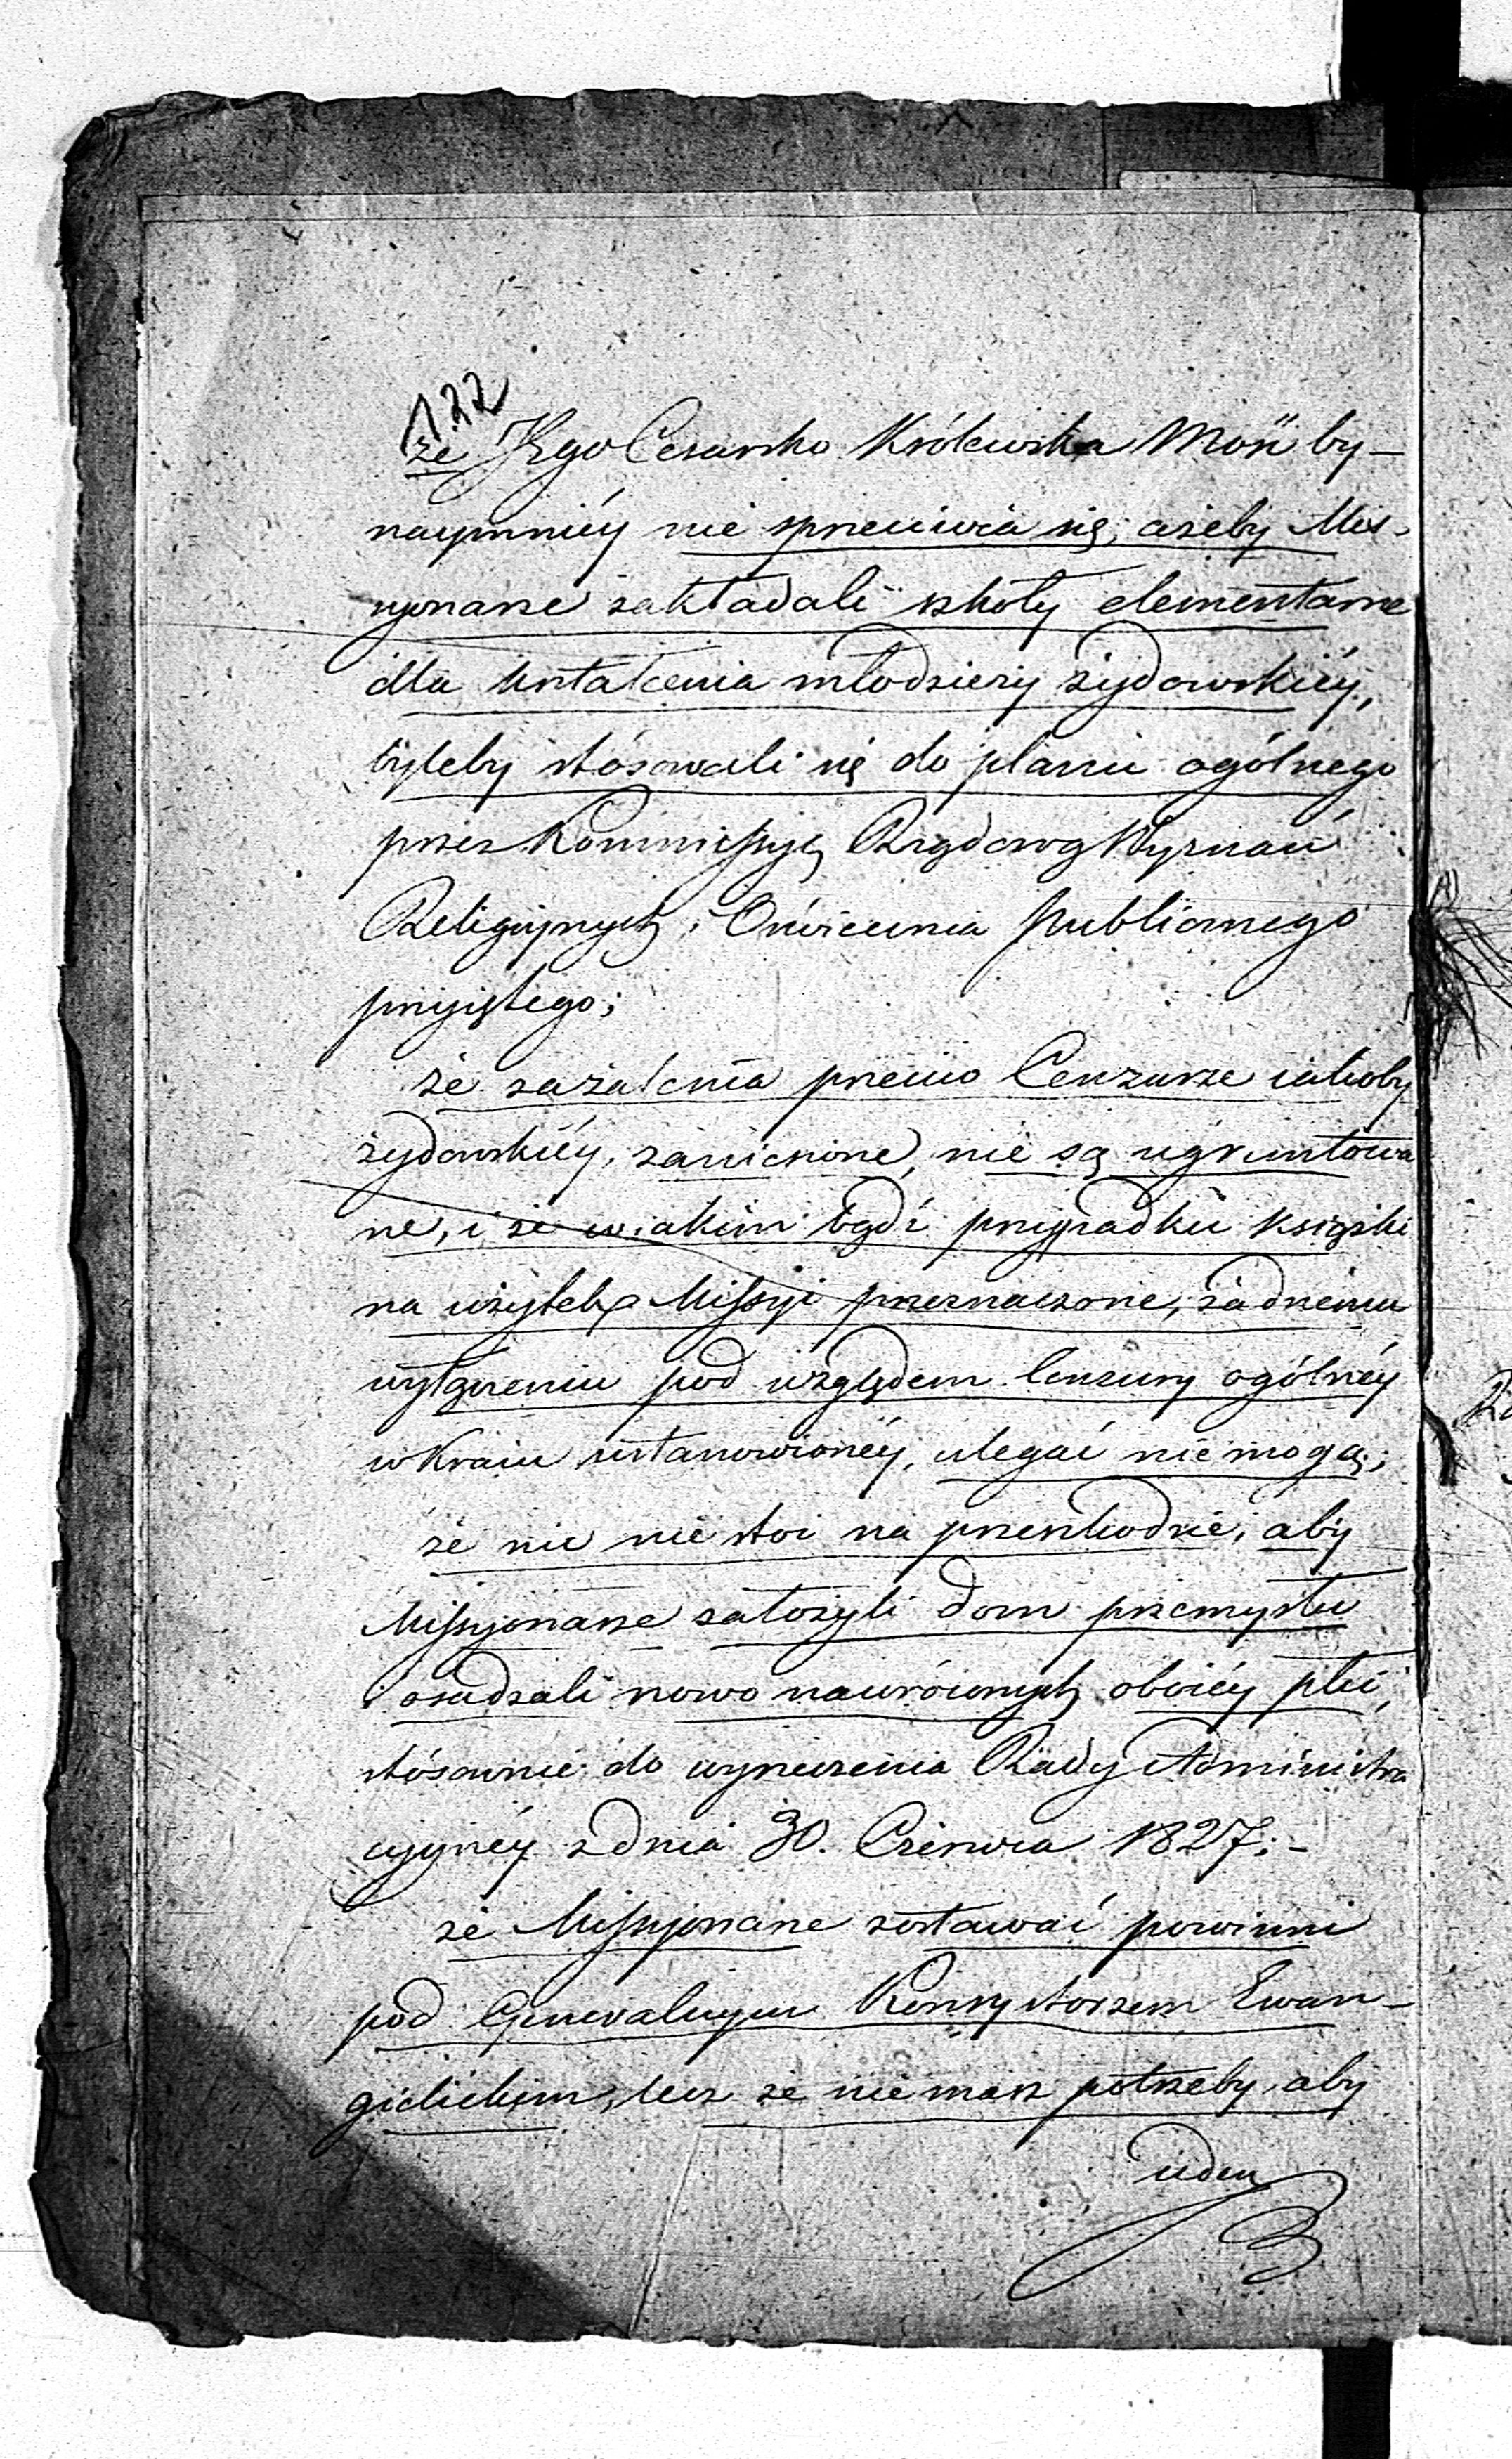 122
że Jego Cesarsko Królewska Mość by-
naymniéy nie sprzeciwia się, ażeby Mis-
syonarze zakładali szkoły elementarne
dla kształcenia młodzieży żydowskiéy,
byleby stósowali się do planu ogólnego
przez Kommissyę Rządową Wyznań
Religiynych i Oświecenia Publicznego
przyiętego;
że zażalenia przeciw Cenzurze iakoby
żydowskiéy, zaniesione, nie są ugruntowa
ne, i że w iakim bądź przypadku książki
na użytek Missyi przeznaczone, żadnemu
wyłączeniu pod względem Cenzury ogólnéy
w Kraiu ustanowionéy, ulegać nie mogą;
że nic nie stoi na przeszkodzie, aby
Missyonarze założyli dom przemysłu
i osadzali nowo nawróconych oboiéy płci,
stósownie do wyrzeczenia Rady Administra
cyinéy z dnia 30. Czerwca 1827; -
że Missyonarze zostawać powinni
pod Generalnym Konsystorzem Ewan-
gielickim, lecz że nie masz potrzeby, aby